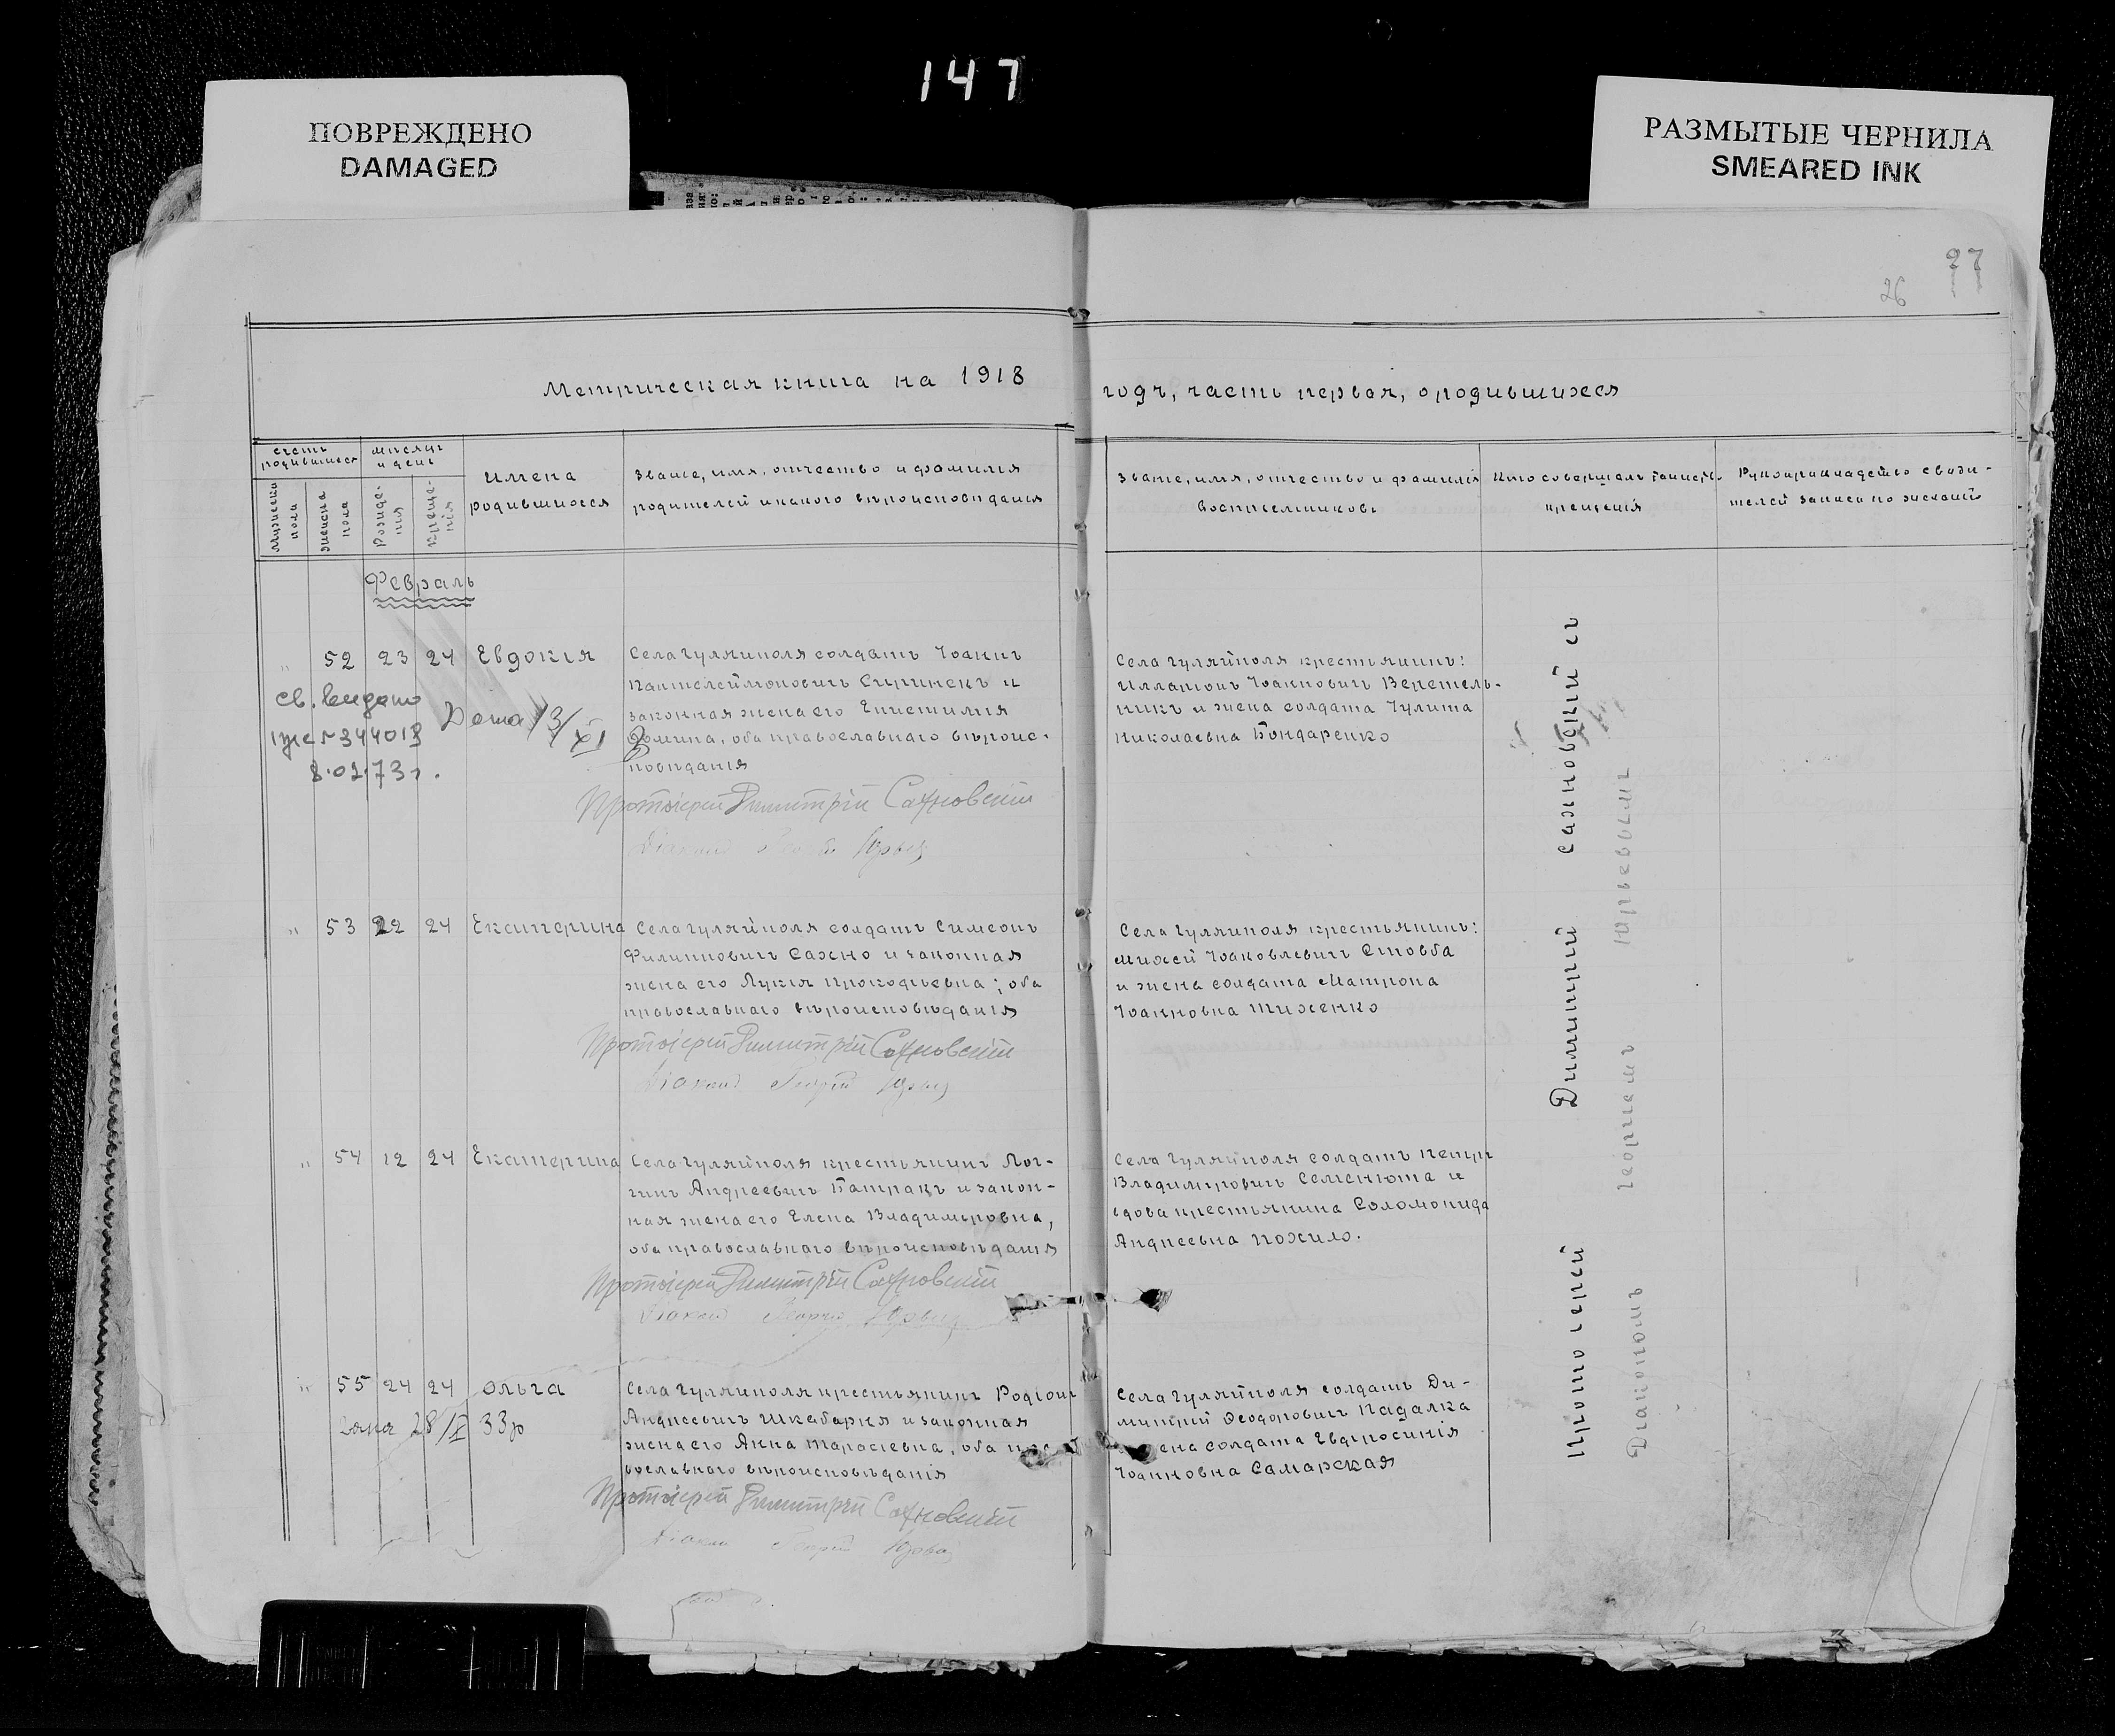 147
ПОВРЕЖДЕНО
DAMAGED
РАЗМЫТЫЕ ЧЕРНИЛА
SMEARED INK
27
26
Метрическая книга на 1918
годъ, часть первая, о родившихся
счетъ родившихся
мѣсяцъ и день
Мужеска пола
женска пола
Рожде-
нія
Креще-
нія
Имена
родившихся
Званіе, имя, отчество и фамилія
родителей и какого вѣроисповѣданія
Званіе, имя, отчество и фамилія
воспріемниковъ
Кто совершалъ таинство
крещенія
Рукоприкладство свидѣ-
телей записи по желанію
Февраль
" 52 23 24 Евдокія
Села Гуляйполя солдатъ Іоаннъ
Пантелеймоновичъ и
законная жена его Епистимія
Ѳомина, оба православнаго вѣроис-
повѣданія
Села Гуляйполя крестьянинъ:
Илларіонъ Іоанновичъ Веретель-
никъ и жена солдата Іулита
Николаевна Бондаренко
св. видано
344013
8.02.73г.
13/XI
Протоіерей Димитрій Сахновскій
Діаконъ Юрьевъ
" 53 22 24 Екатерина
Села Гуляйполя солдатъ Симеонъ
Филипповичъ Сахно и законная
жена его Лукія Прокофьевна; оба
православнаго вѣроисповѣданія
Села Гуляйполя крестьянинъ:
Михей Іаковлевичъ Стовба
и жена солдата Матрона
Іоанновна Тихенко
Протоіерей Димитрій Сахновскій
Діаконъ Георгій Юрьевъ
" 54 12 24 Екатерина
Села Гуляйполя крестьянинъ Лог-
гинъ Андреевичъ Батракъ и закон-
ная жена его Елена Владимировна,
оба православнаго вѣроисповѣданія
Села Гуляйполя солдатъ Петръ
Владимировичъ Семенюта и
вдова крестьянина Соломонида
Андреевна Похило.
Протоіерей Димитрій Сахновскій
Діаконъ Георгій Юрьевъ
" 55 24 24 Ольга
Села Гуляйполя крестьянинъ Родіонъ
Андреевичъ Шкабарня и законная
жена его Анна Тарасіевна, оба пра
вославнаго вѣроисповѣданія
Села Гуляйполя солдатъ Ди-
митрій Ѳеодоровичъ Падалка
ена солдата Евфросинія
Іоанновна Самарская
28/X 33р
Протоіерей Димитрій Сахновскій
Діаконъ Георгій Юрьевъ
Протоіерей Димитрий Сахновский съ
Діакономъ Георгіемъ Юрьевымъ